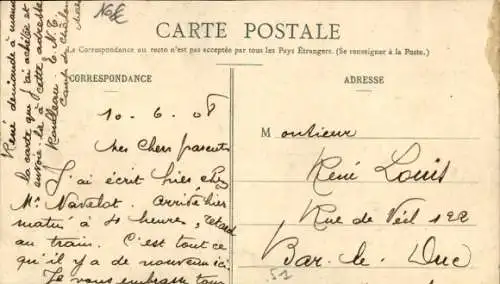 CARTE POSTALE
La Correspondance au recto n'est pas acceptée par tous les Pays Étrangers. (Se renseigner à la Poste.)
CORRESPONDANCE
10-6-08
Mes Chers parents
J'ai écrit hier chez
Mr Navelot. Arrivé hier
matin à 4 heures, retard
au train. C'est tout ce
qu'il y a de nouveau ici
Je vous embrasse tous
René demande à
la carte que j'ai achetée et
envoie-la à cette adresse
Camp de
ADRESSE
Monsieur
René Louis
Rue de Véil 122
Bar-le-Duc
51